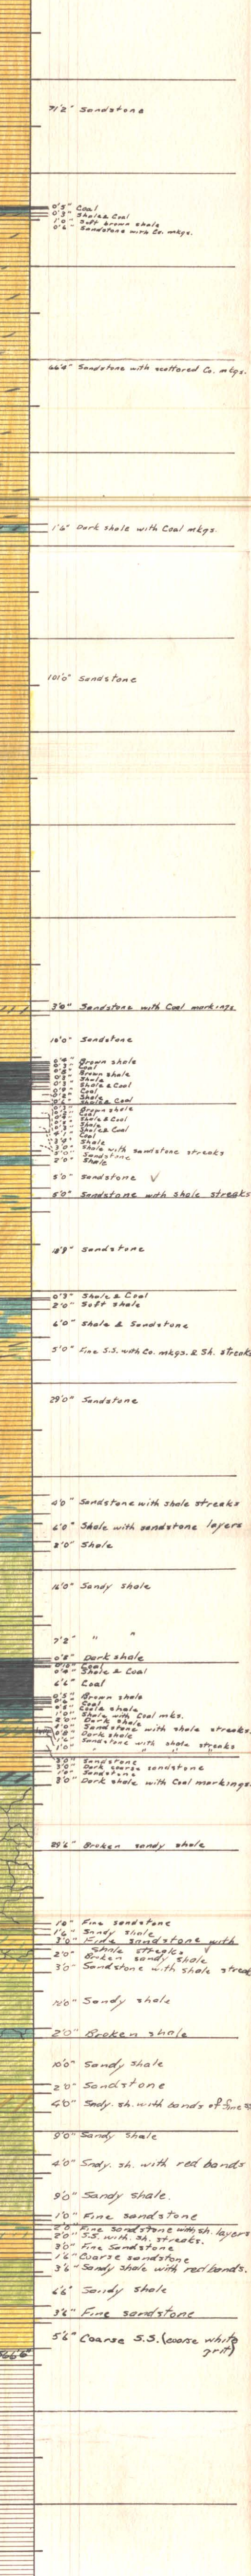 71'2" Sandstone
0'5" Coal
0'3" Shale & Coal
1'0" Soft brown shale
0'6" Sandstone with Co. mkgs.
Sandstone with scattered Co. mkgs.
1'6" Dark shale with Coal mkgs.
101'0" Sandstone
3'0" Sandstone with Coal markings
Sandstone
Brown shale
Coal
Brown shale
Shale
Shale & Coal
Coal
Shale
Shale & Coal
Brown shale
Coal
Shale & Coal
Shale
Shale & Coal
Coal
Shale
Shale with sandstone streaks
Sandstone
2'0" Shale
5'0" Sandstone ✓
5'0" Sandstone with shale streaks
Sandstone
0'3" Shale & Coal
2'0" Soft shale
6'0" Shale & Sandstone
5'0" Fine S.S. with Co. mkgs. & Sh. streaks
29'0" Sandstone
4'0" Sandstone with shale streaks
6'0" Shale with sandstone layers
Shale
Sandy shale
7'2" " "
0'8" Dark shale
Coal
Shale & Coal
6'6" Coal
0'5" Brown shale
shale
1'0" Shale with Coal mks.
2'0" Dark shale
Sandstone with shale streaks.
Dark shale
Sandstone with shale streaks
1'0" " " " "
3'0" Sandstone
Dark coarse sandstone
Sandstone
3'0" Dark shale with Coal markings.
29'6" Broken sandy shale
1'0" Fine sandstone
1'6" Sandy shale
3'0" Fine sandstone with
shale streaks
2'0" Broken sandy shale
3'0" Sandstone with shale streak
Sandy shale
2'0" Broken shale
10'0" Sandy shale
2'0" Sandstone
4'0" Sndy. sh. with bands of fine
9'0" Sandy shale
4'0" Sndy. sh. with red bands
9'0" Sandy shale.
1'0" Fine sandstone
2'0" Fine sandstone with sh. layers
2'0" S.S. with sh. streaks.
3'0" Fine Sandstone
1'6" Coarse sandstone
3'6" Sandy shale with red bands.
6'6" Sandy shale
3'6" Fine sandstone
5'6" Coarse S.S. (coarse white
grit)